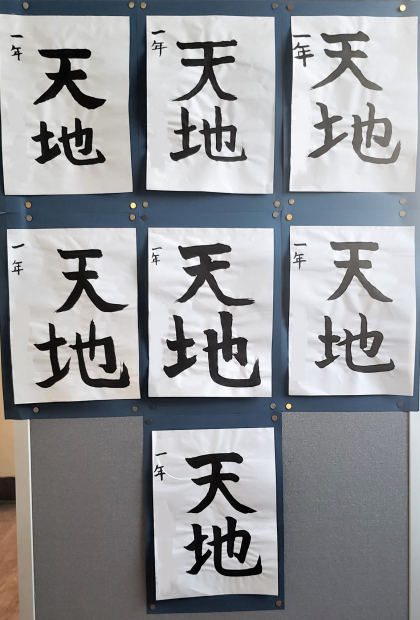 天地
一年
天地
一年
天地
一年
天地
一年
天地
一年
天地
一年
天地
一年